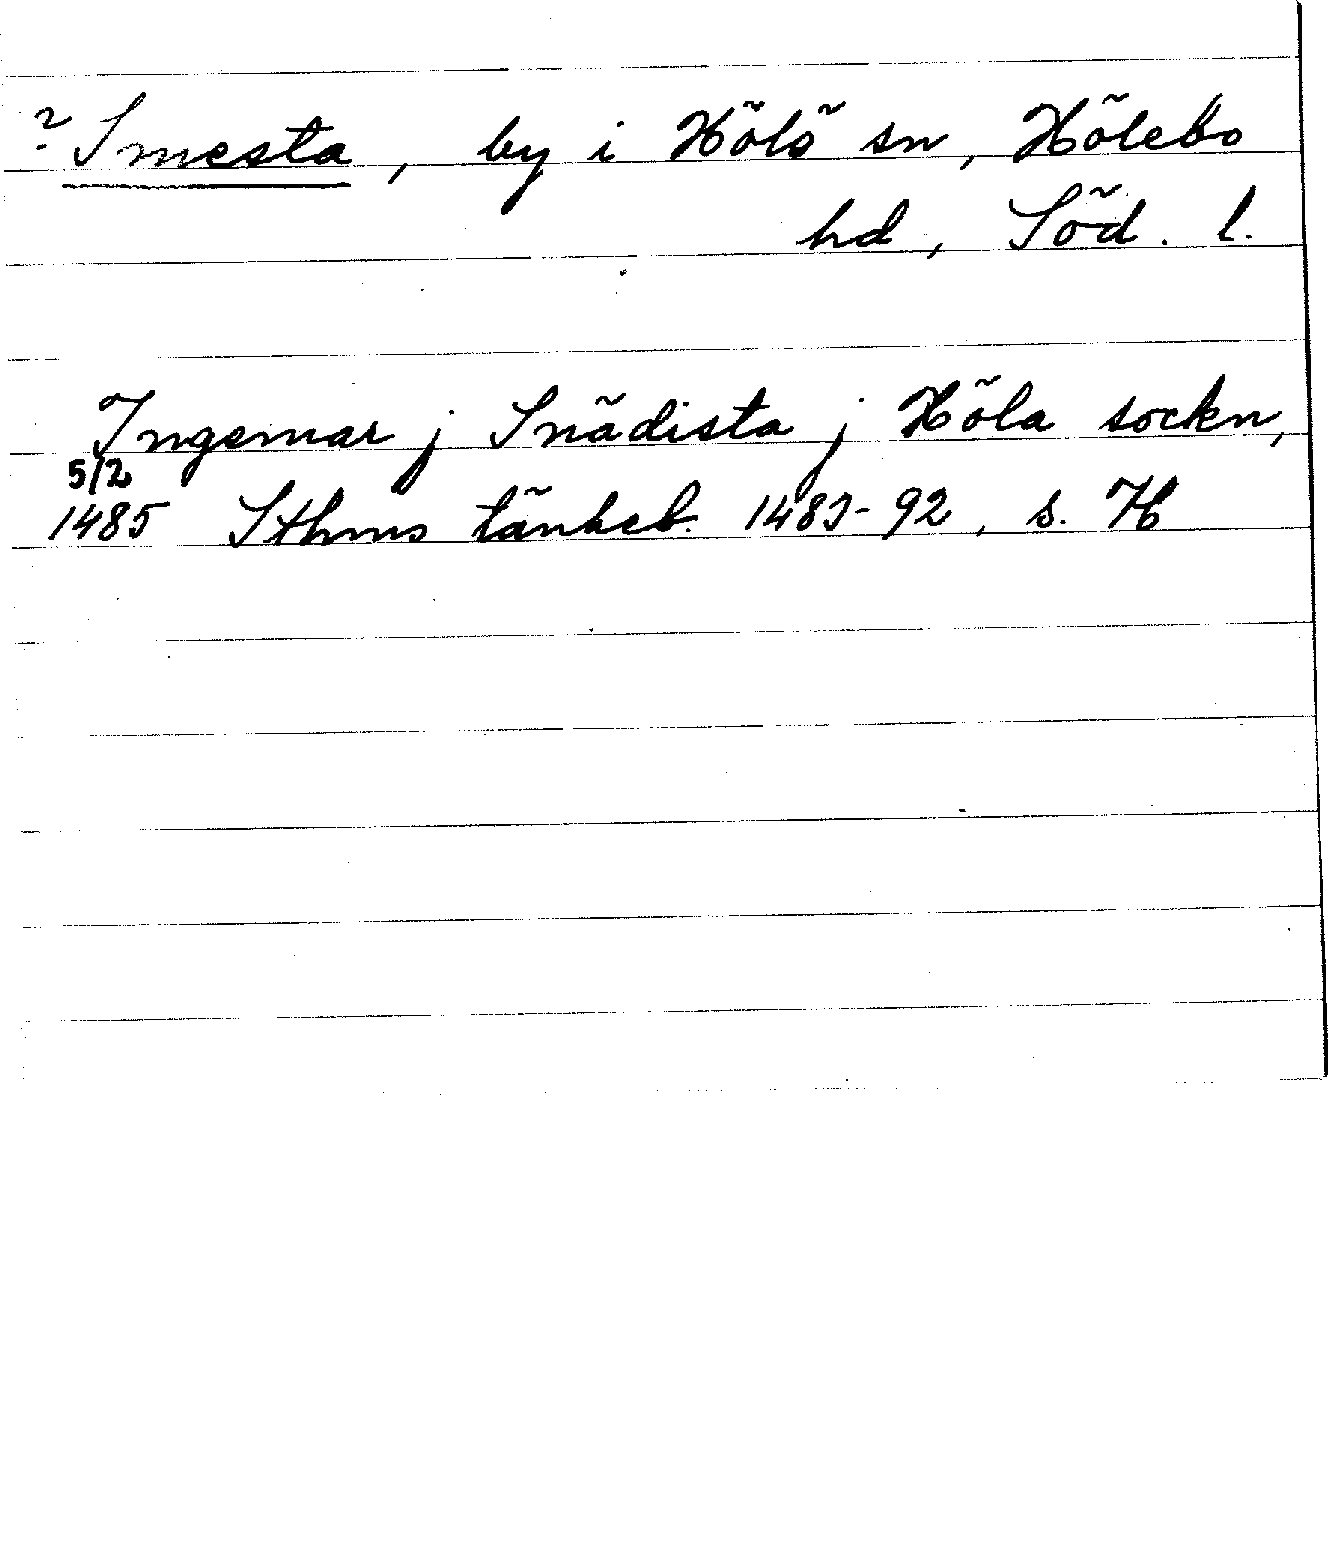 ? Smesta, by i Hölö sn, Hölebo
hd, Söd. l.
Ingemar j Snädista j Höla sockn,
5/2
1485 Sthms tänkeb. 1483-92, s.